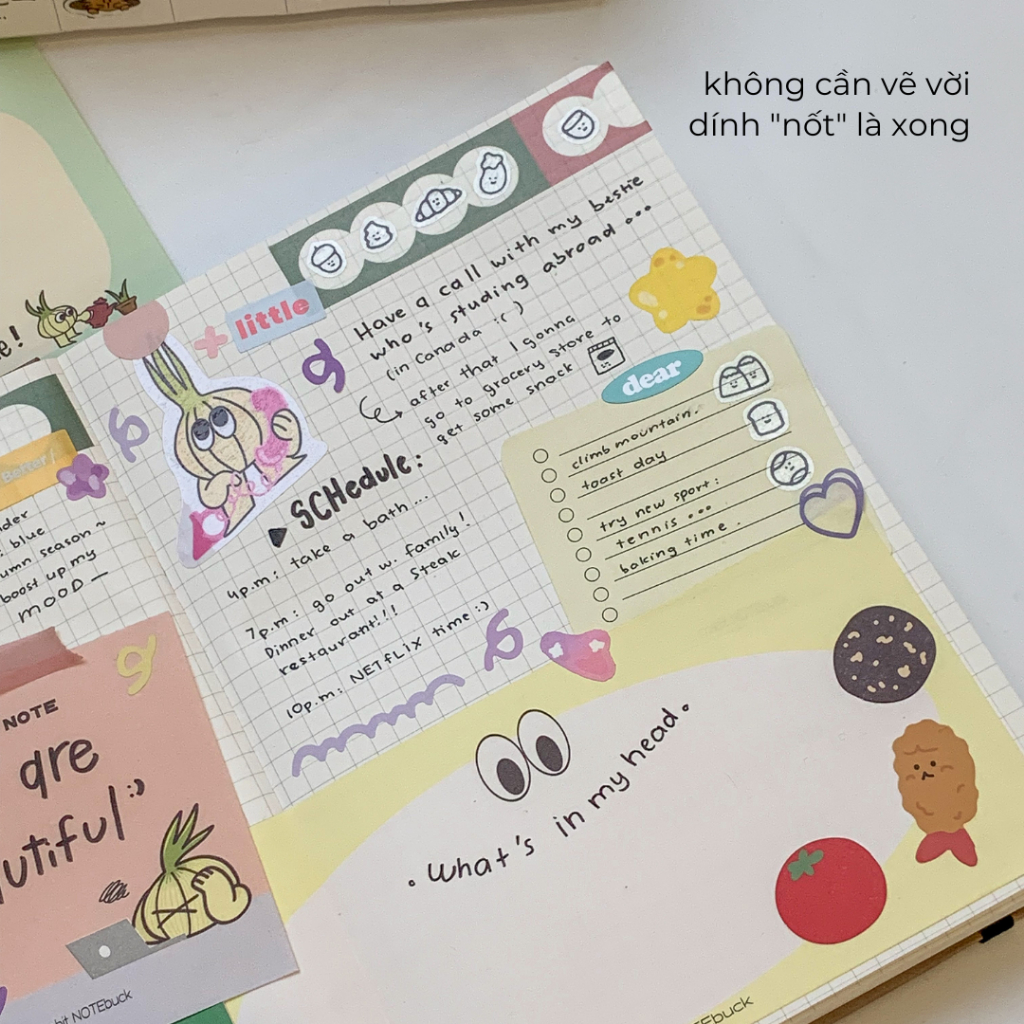 không cần vẽ vời
dính "nốt" là xong
little
Have a call with my bestie
who's studing abroad...
(in Canada :( )
after that I gonna
go to grocery store to
get some snack
dear
climb mountain.
toast day
try new sport:
tennis ...
baking time.
SCHedule:
4p.m: take a bath...
7p.m: go out w. family!
Dinner out at a steak
restaurant!!!
10p.m: NETfLiX time :)
What's in my head.
Better!
: blue
season ~
boost up my
mOOD —
NOTE
are
NOTEbuck